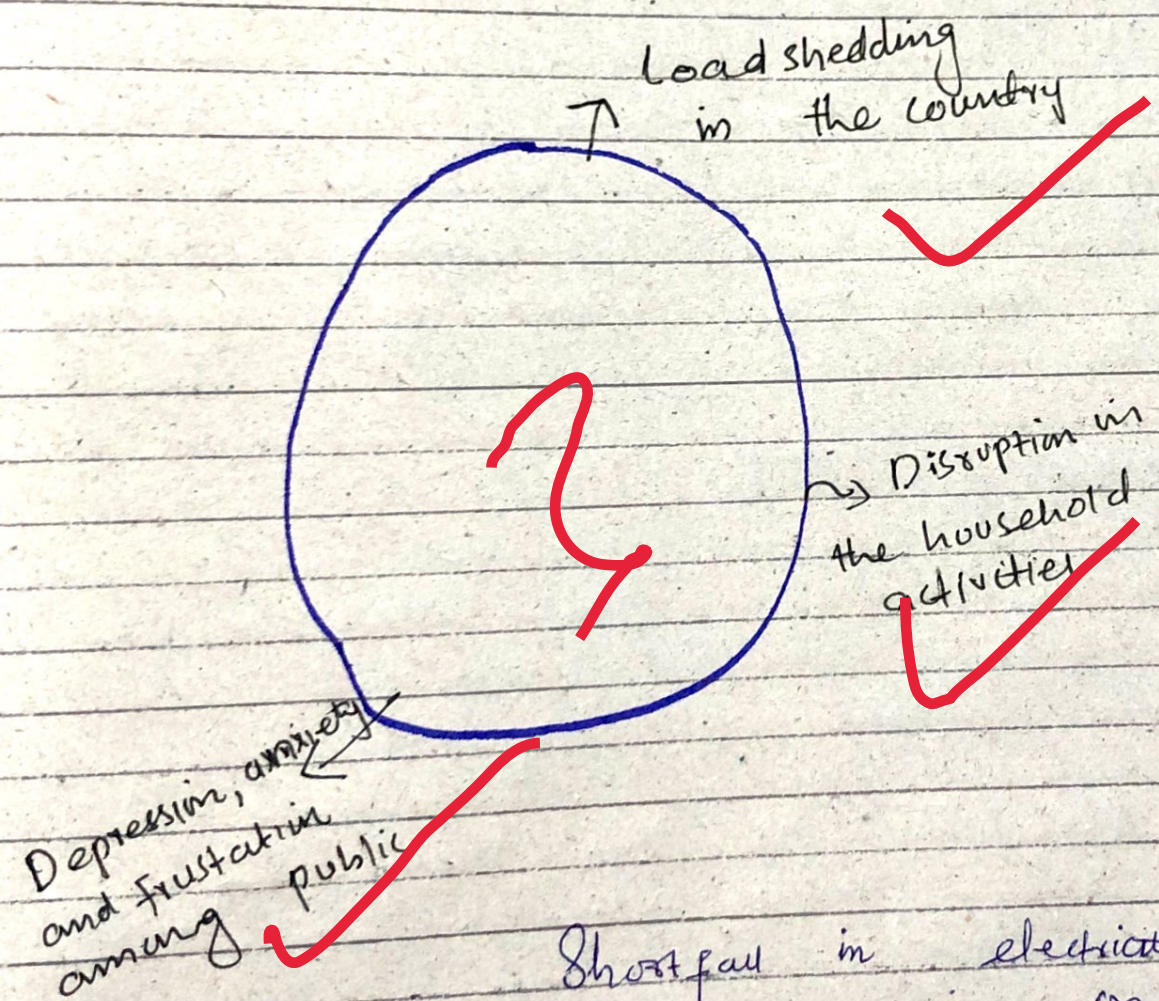 Load shedding
in the country
Disruption in
the household
activities
Depression, anxiety
and frustation
among public
Shortfall in electrical